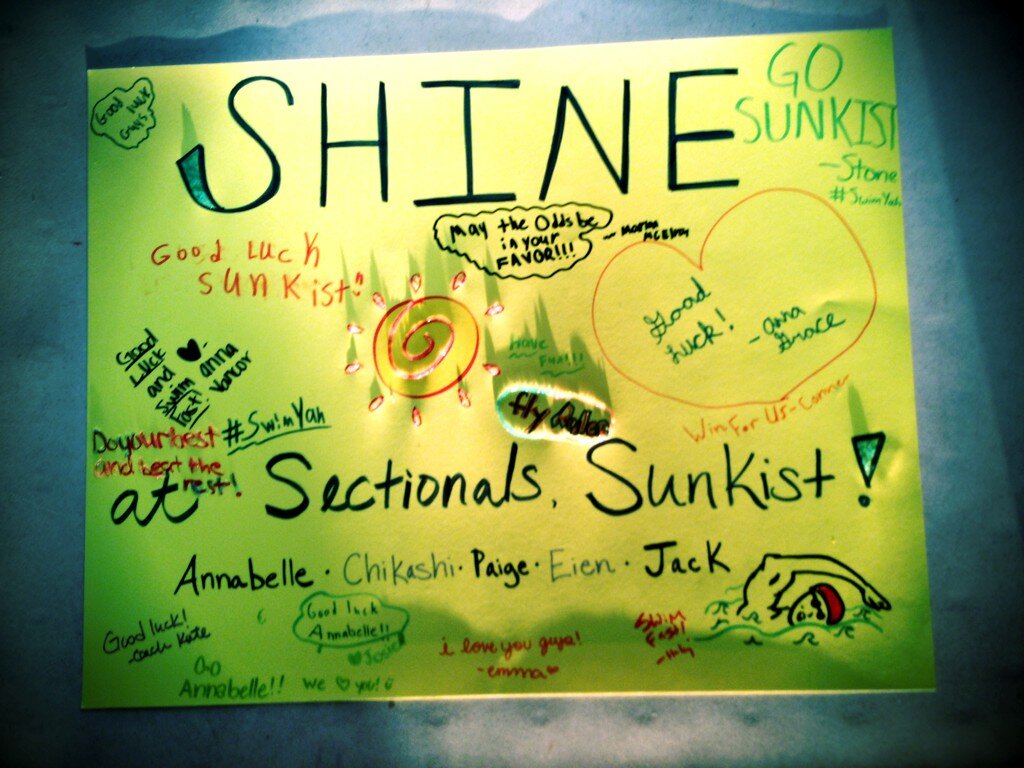 SHINE
Good Luck
Guys
GO
SUNKIST
-Stone
#SwimYah
May the Odds be
in your
FAVOR!!!
Good Luck
Sunkist!!
Good
Luck!
-Anna
Grace
Have
Fun!!!
Good
Luck
and
Swim
fast!
anna
#SwimYah
Do your best
and best the
rest!
Win For US-Conner
at Sectionals, Sunkist!
Annabelle · Chikashi · Paige · Eien · Jack
Good luck!
coach Kate
Good luck
Annabelle!!
♥Josie
i love you guys!
-emma♥
Swim
Fast!
Go
Annabelle!!
We ♥ you!